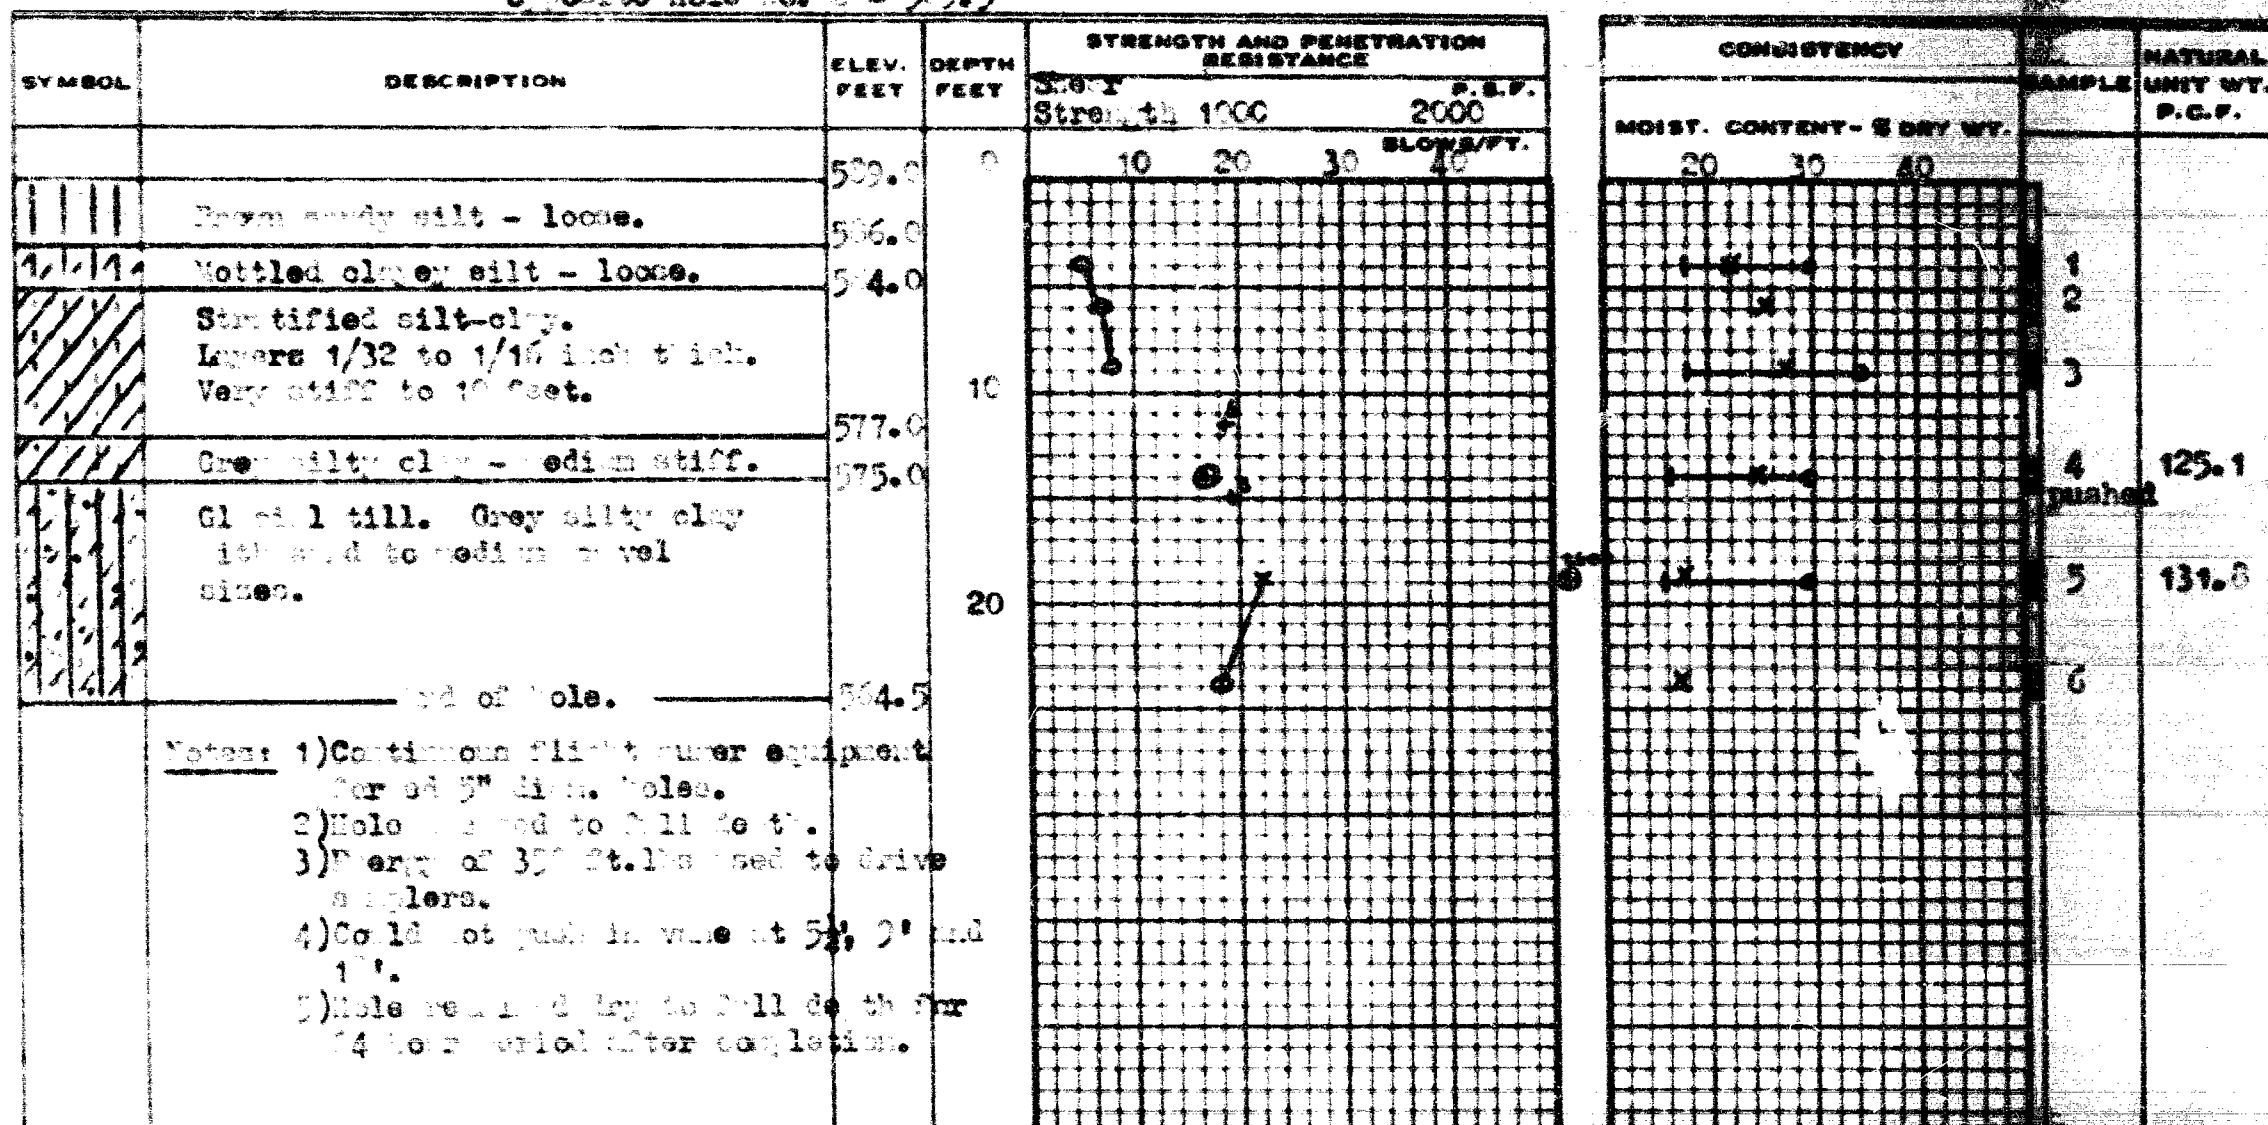 SYMBOL
DESCRIPTION
ELEV. FEET
DEPTH FEET
STRENGTH AND PENETRATION
RESISTANCE
Shear P.S.F.
Strength 1000 2000
BLOWS/FT.
10 20 30 40
CONSISTENCY
MOIST. CONTENT - % DRY WT.
20 30 40
SAMPLE
NATURAL
UNIT WT.
P.C.F.
589.0 0
Brown sandy silt - loose.
586.0
Mottled clayey silt - loose.
584.0
1
2
Stratified silt-clay.
Layers 1/32 to 1/16 inch thick.
Very stiff to 10 feet.
10
3
577.0
Grey silty clay - medium stiff.
575.0
4 125.1
pushed
Glacial till. Grey silty clay
with sand to medium gravel
sizes.
20
5 131.8
6
End of hole. 564.5
Notes: 1)Continuous flight auger equipment
for ed 5" diam. holes.
2)Hole to full depth.
3)Energy of 350 ft.lbs used to drive
samplers.
4)Could not push in vane at 5½', 9' and
5)Hole remained dry to full depth for
24 hour period after completion.